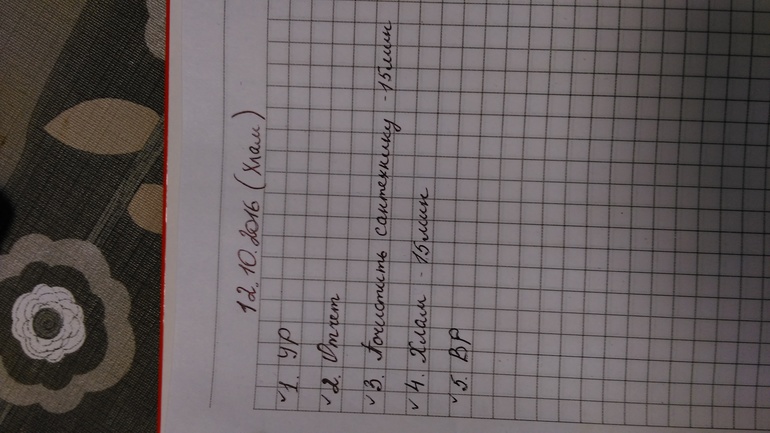 12.10.2016 (Хлам)
✓1. УР
✓2. Отчет
✓3. Почистить сантехнику - 15мин
✓4. Хлам - 15мин
✓5. ВР